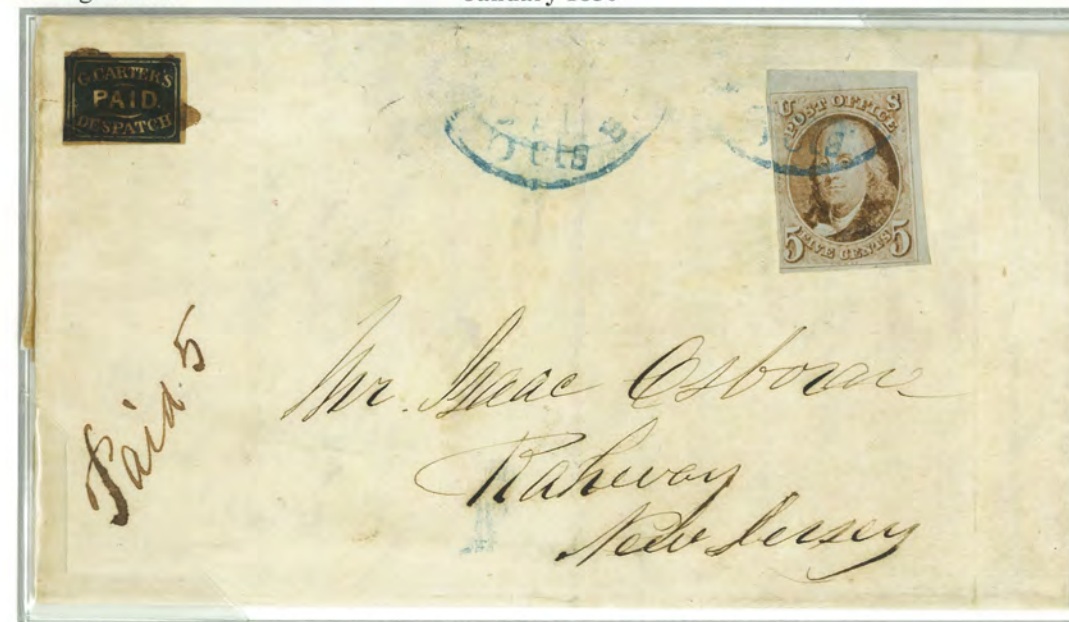 G. CARTER'S
PAID.
DESPATCH
U S
POST OFFICE
5 FIVE CENTS 5
Paid. 5
Mr. Isaac Osborne
Rahway
New Jersey